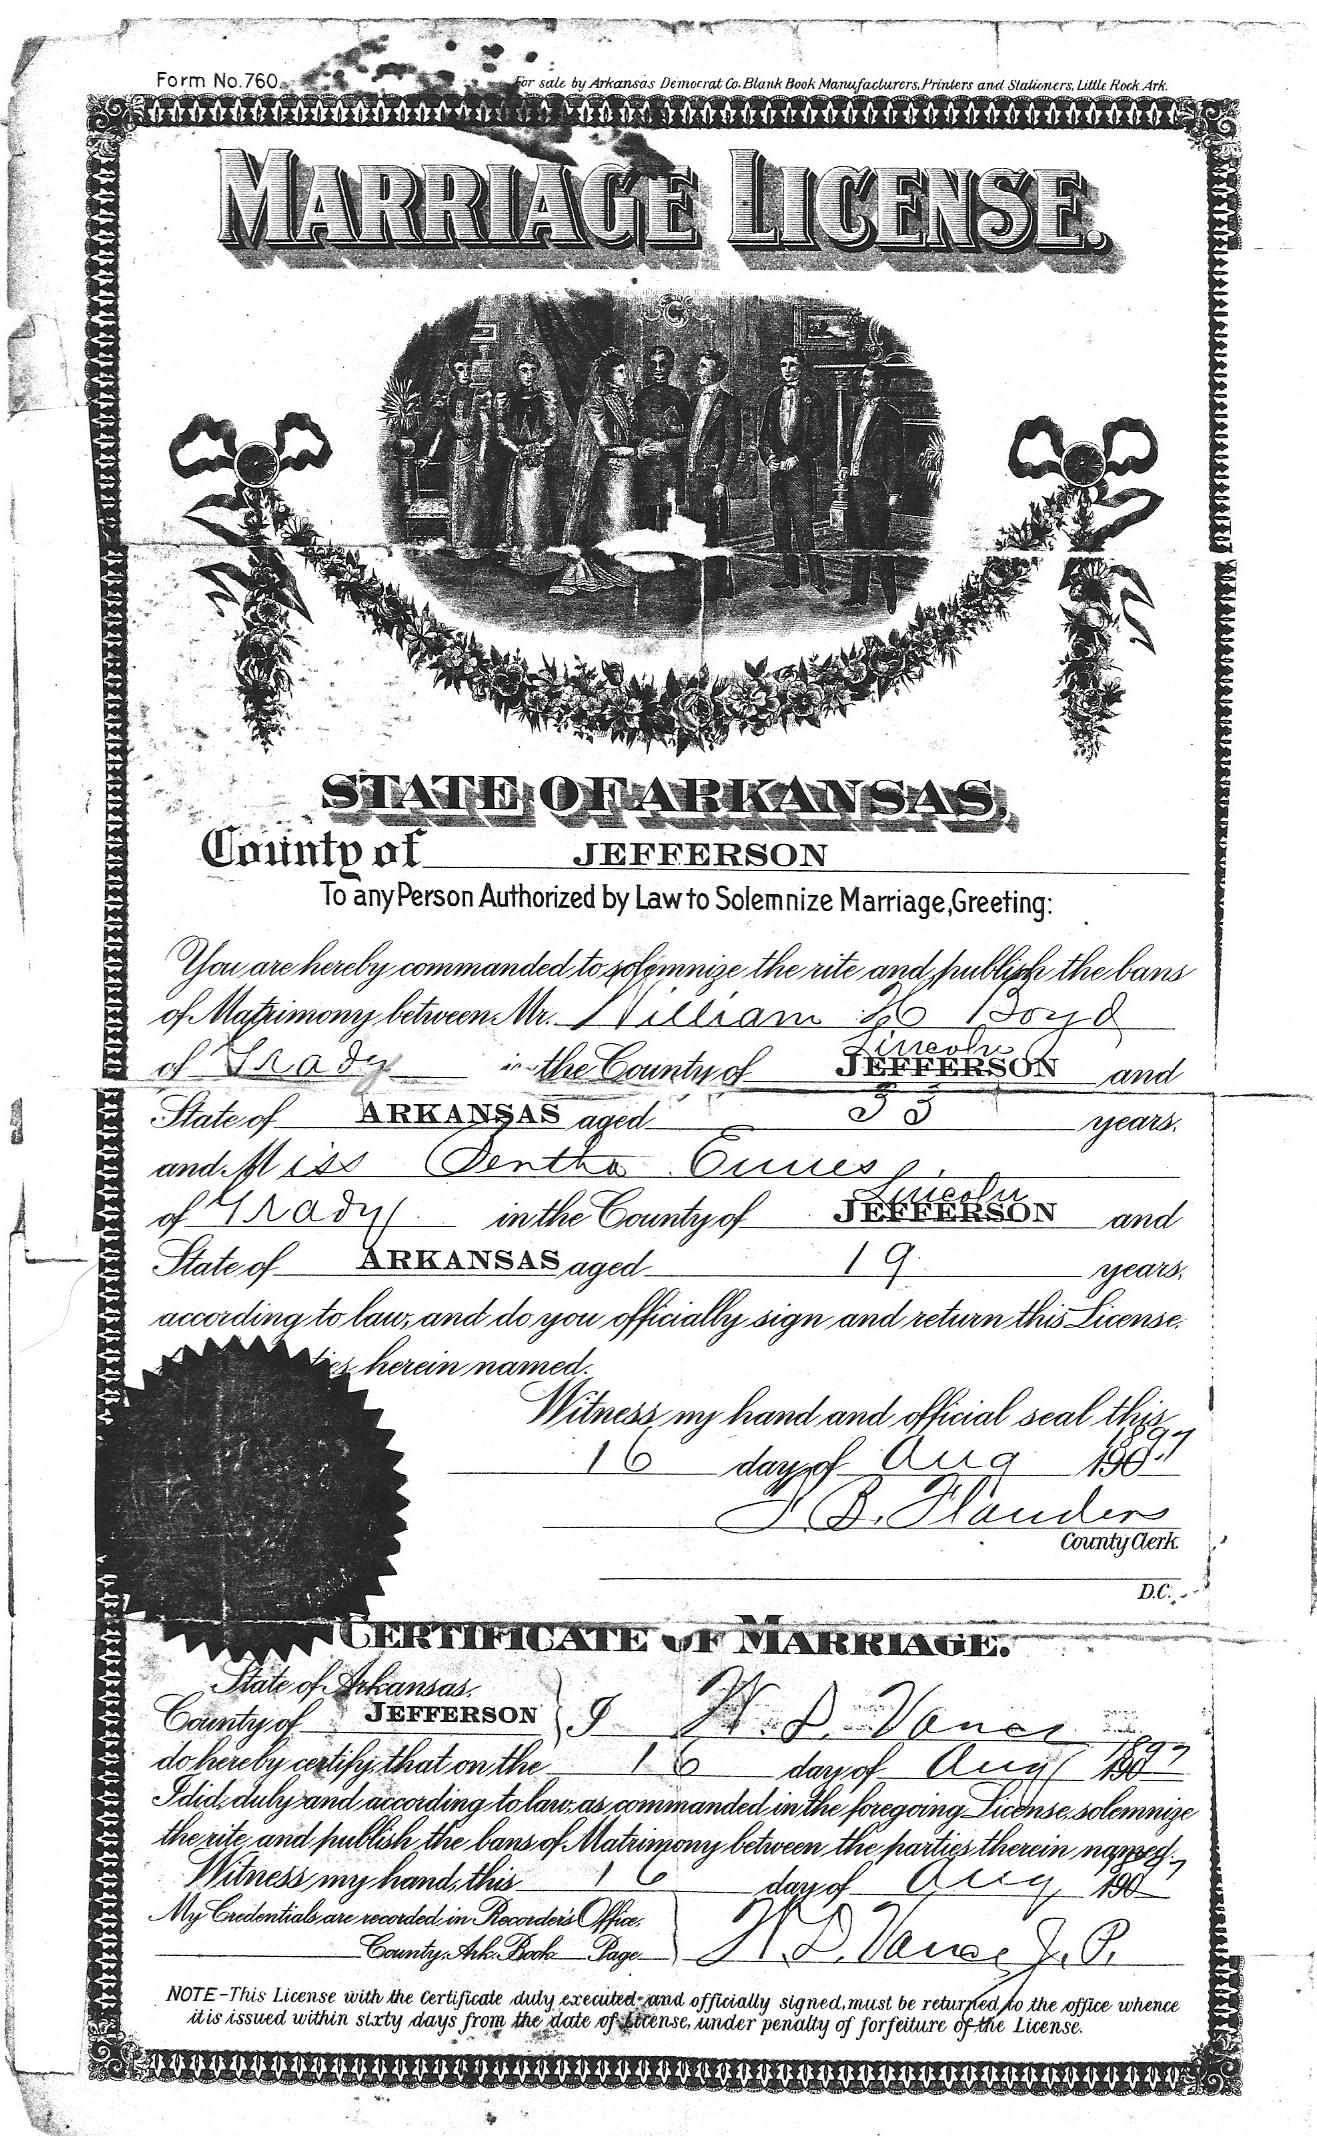 Form No. 760.
For sale by Arkansas Democrat Co. Blank Book Manufacturers, Printers and Stationers, Little Rock Ark.
MARRIAGE LICENSE.
STATE OF ARKANSAS,
County of JEFFERSON
To any Person Authorized by Law to Solemnize Marriage, Greeting:
You are hereby commanded to solemnize the rite and publish the bans
of Matrimony between Mr. William H Boyd
Lincoln
of Grady in the County of JEFFERSON and
State of ARKANSAS aged 33 years,
and Miss
Lincoln
of Grady in the County of JEFFERSON and
State of ARKANSAS aged 19 years,
according to law, and do you officially sign and return this License
herein named.
Witness my hand and official seal this
1897
16 day of Aug 190
J. B. Flanders
County Clerk
D.C.
CERTIFICATE OF MARRIAGE.
State of Arkansas,
County of JEFFERSON } I W. D. Vance
1897
do hereby certify, that on the 16 day of Aug 190
I did, duly and according to law, as commanded in the foregoing License, solemnize
the rite, and publish the bans of Matrimony between the parties therein named.
1897
Witness my hand, this 16 day of Aug 190
My Credentials are recorded in Recorder's Office,
County, Ark. Book Page W. D. Vance J. P.
NOTE-This License with the Certificate duly executed and officially signed, must be returned to the office whence
it is issued within sixty days from the date of License, under penalty of forfeiture of the License.